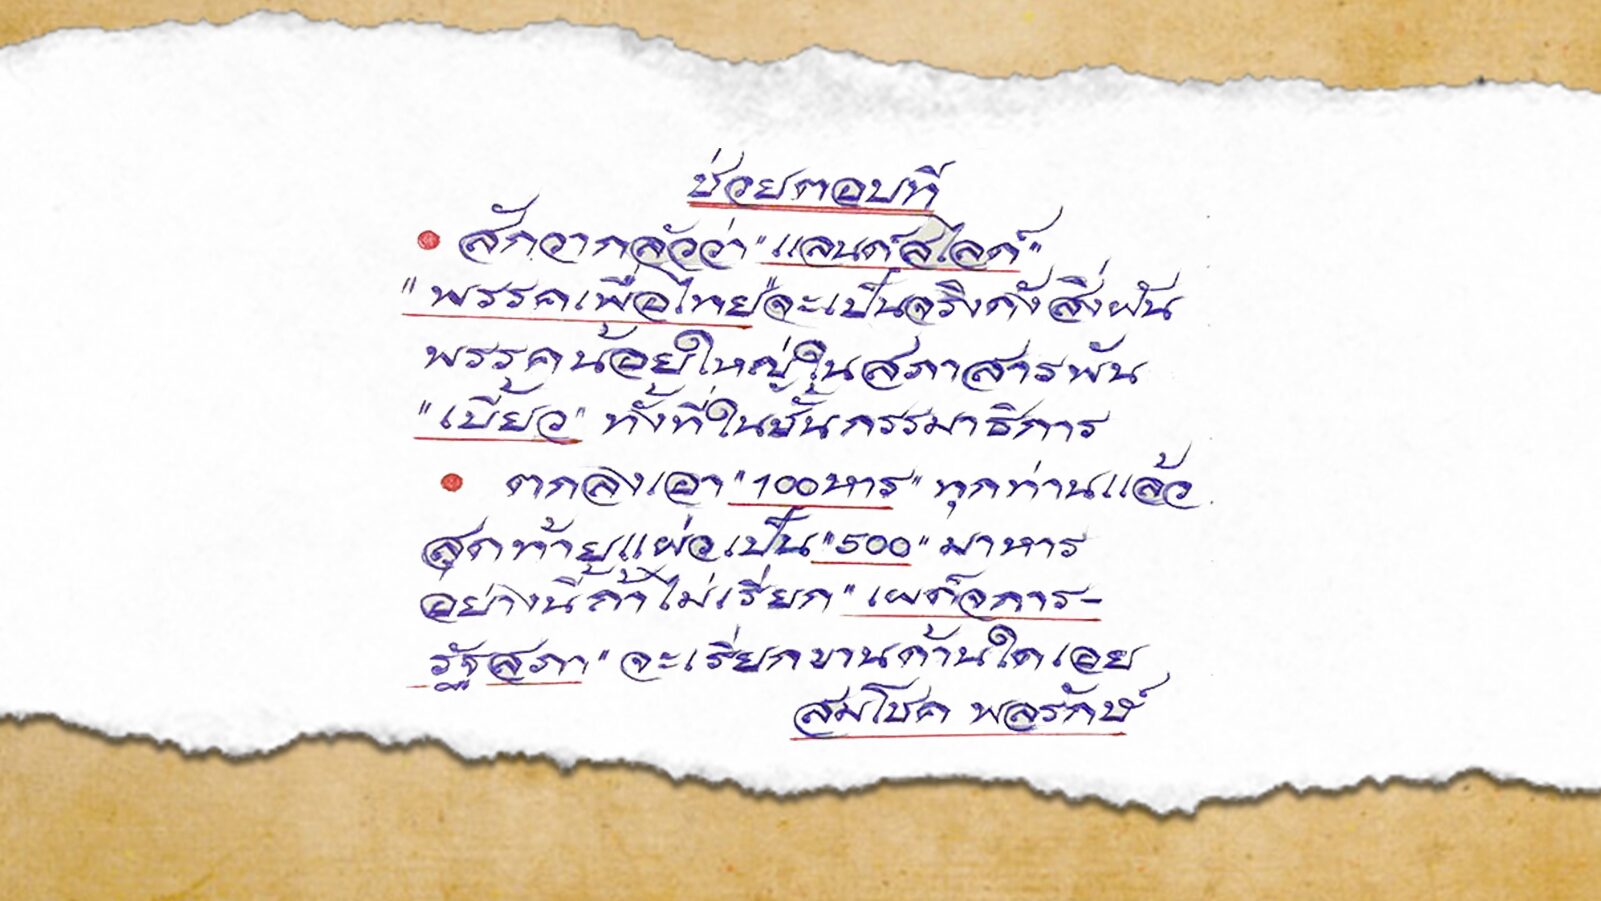 ช่วยตอบที
• สักวากลัวว่า "แลนด์สไลด์"
"พรรคเพื่อไทย" จะเป็นจริงดั่งสิ่งฝัน
พรรคน้อยใหญ่ในสภาสารพัน
"เบี้ยว" ทั้งที่ในชั้นกรรมาธิการ
• ตกลงเอา "100หาร" ทุกท่านแล้ว
สุดท้ายแผ่วเป็น "500" มาหาร
อย่างนี้ถ้าไม่เรียก "เผด็จการ-
รัฐสภา" จะเรียกขานด้านใดเอย
สมโชค พลรักษ์